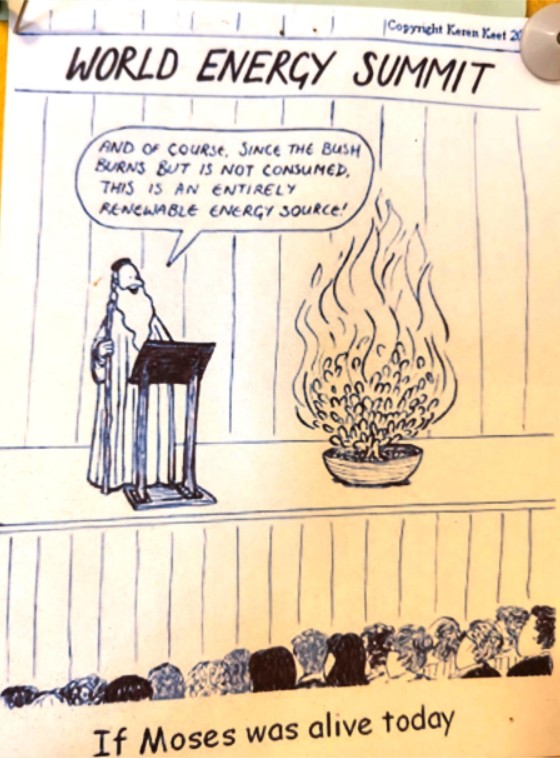 Copyright Keren Keet
WORLD ENERGY SUMMIT
AND OF COURSE, SINCE THE BUSH
BURNS BUT IS NOT CONSUMED,
THIS IS AN ENTIRELY
RENEWABLE ENERGY SOURCE!
If Moses was alive today